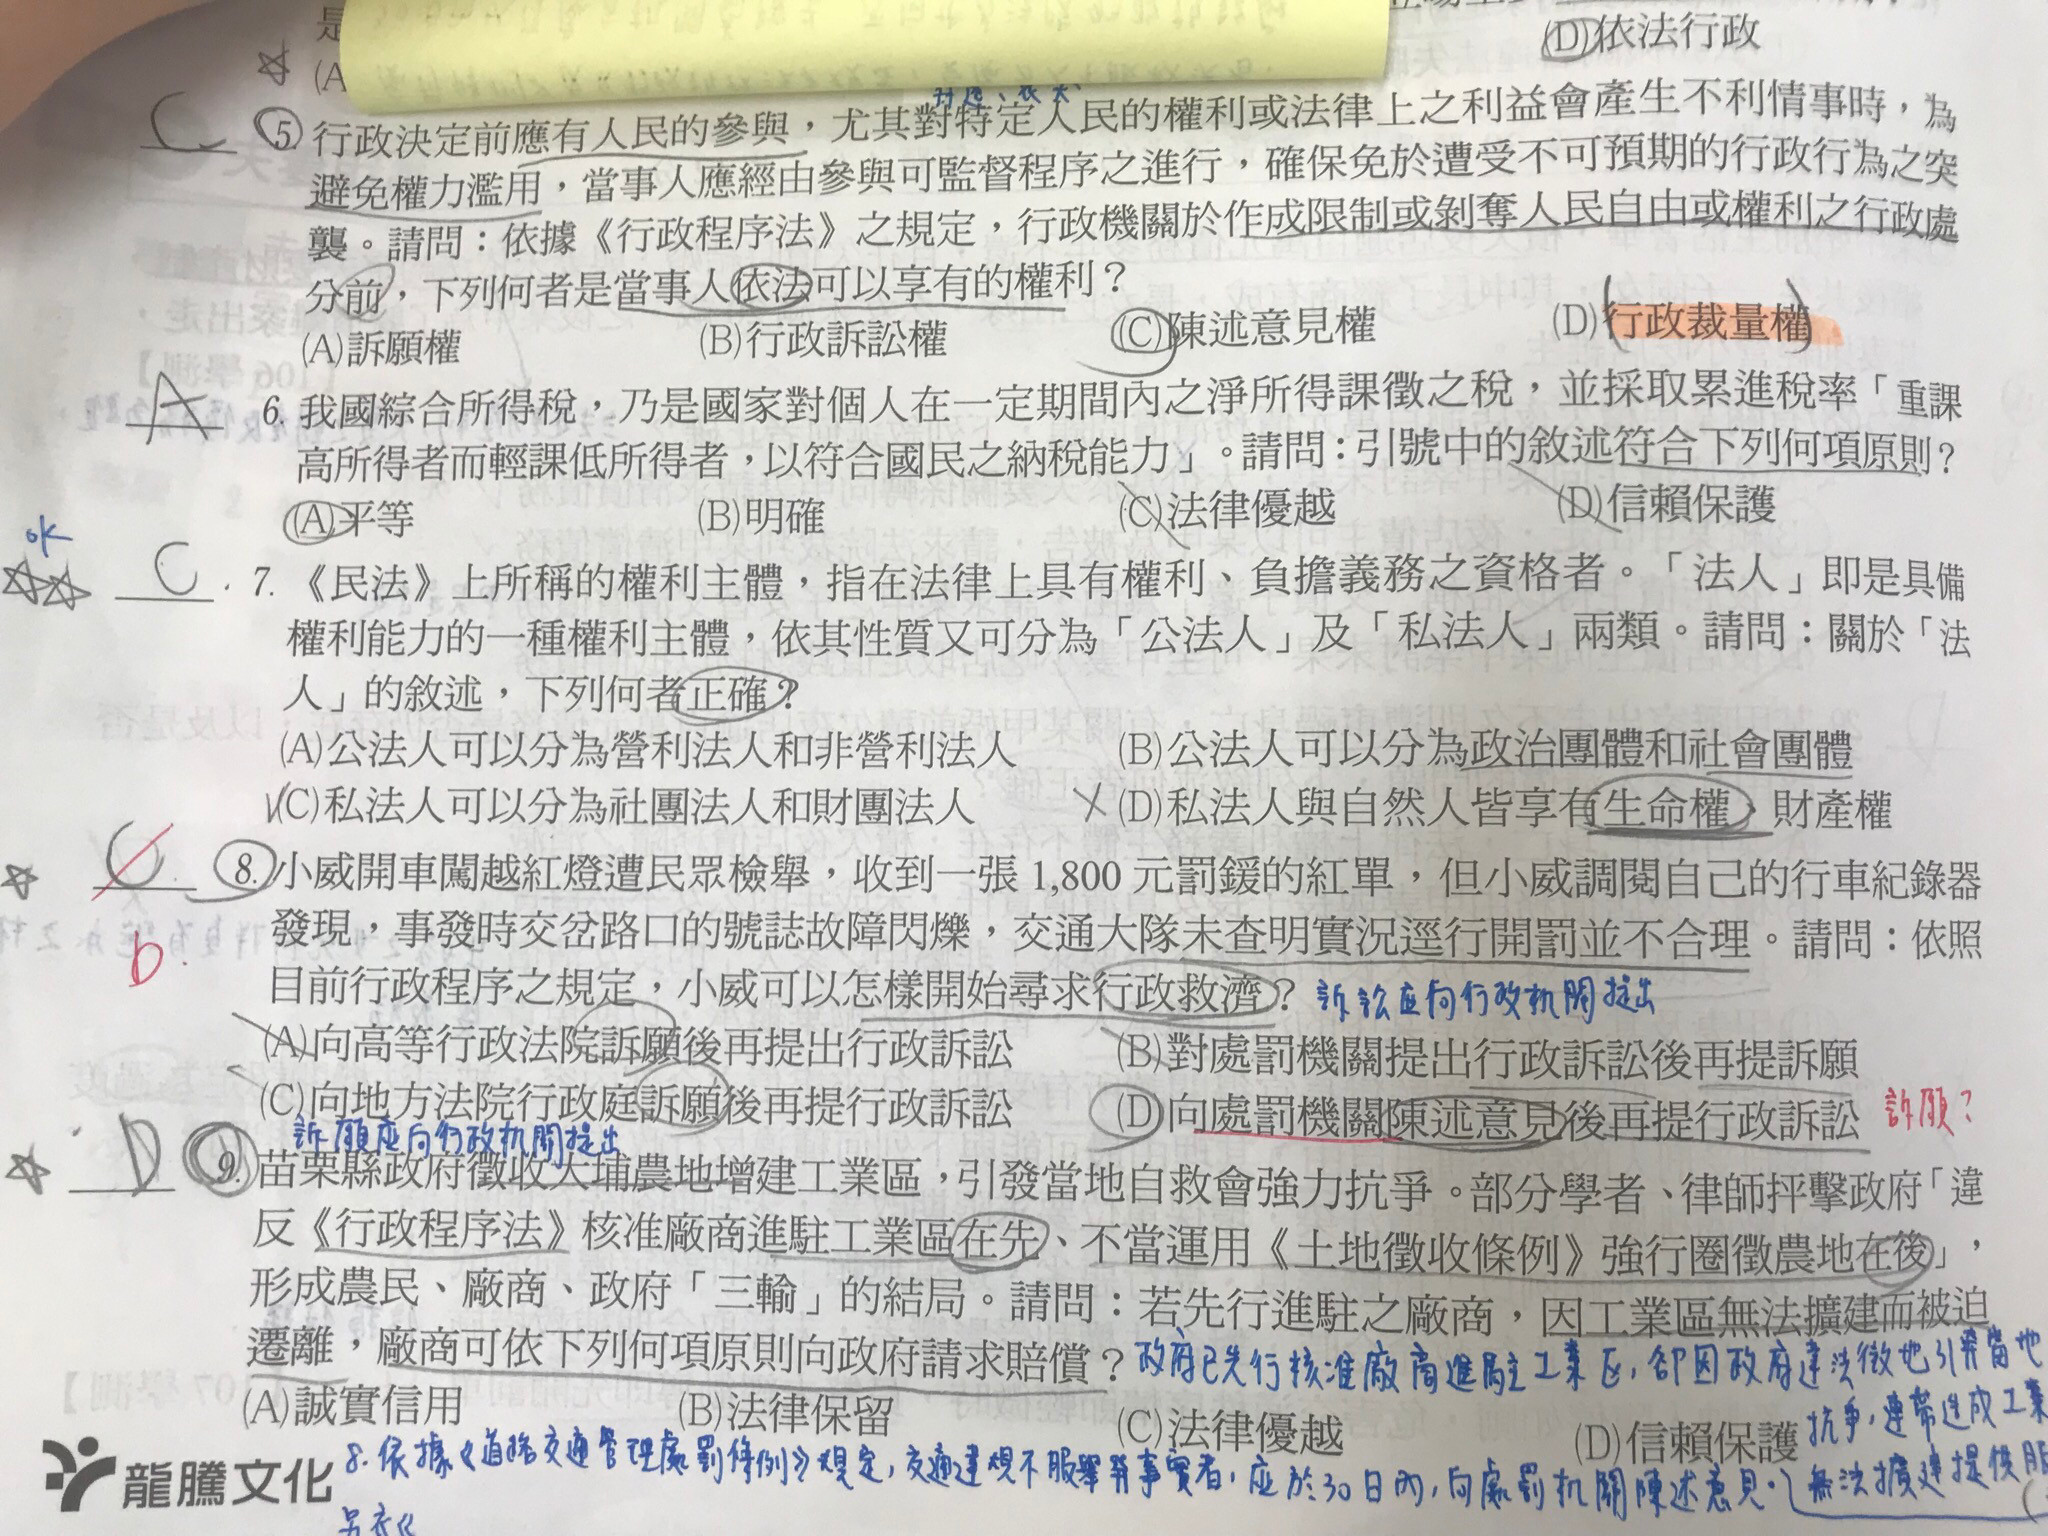 是
(D)依法行政
(A
C 5. 行政決定前應有人民的參與，尤其對特定人民的權利或法律上之利益會產生不利情事時，為
避免權力濫用，當事人應經由參與可監督程序之進行，確保免於遭受不可預期的行政行為之突
襲。請問：依據《行政程序法》之規定，行政機關於作成限制或剝奪人民自由或權利之行政處
分前，下列何者是當事人依法可以享有的權利？
(A)訴願權 (B)行政訴訟權 (C)陳述意見權 (D)行政裁量權
A 6. 我國綜合所得稅，乃是國家對個人在一定期間內之淨所得課徵之稅，並採取累進稅率「重課
高所得者而輕課低所得者，以符合國民之納稅能力」。請問：引號中的敘述符合下列何項原則？
(A)平等 (B)明確 (C)法律優越 (D)信賴保護
ok
C 7. 《民法》上所稱的權利主體，指在法律上具有權利、負擔義務之資格者。「法人」即是具備
權利能力的一種權利主體，依其性質又可分為「公法人」及「私法人」兩類。請問：關於「法
人」的敘述，下列何者正確？
(A)公法人可以分為營利法人和非營利法人 (B)公法人可以分為政治團體和社會團體
(C)私法人可以分為社團法人和財團法人 (D)私法人與自然人皆享有生命權、財產權
C 8. 小威開車闖越紅燈遭民眾檢舉，收到一張 1,800 元罰鍰的紅單，但小威調閱自己的行車紀錄器
發現，事發時交岔路口的號誌故障閃爍，交通大隊未查明實況逕行開罰並不合理。請問：依照
D.
目前行政程序之規定，小威可以怎樣開始尋求行政救濟？ 訴訟應向行政机関提出
(A)向高等行政法院訴願後再提出行政訴訟 (B)對處罰機關提出行政訴訟後再提訴願
(C)向地方法院行政庭訴願後再提行政訴訟 (D)向處罰機關陳述意見後再提行政訴訟 訴願？
訴願應向行政机関提出
D 9. 苗栗縣政府徵收大埔農地增建工業區，引發當地自救會強力抗爭。部分學者、律師抨擊政府「違
反《行政程序法》核准廠商進駐工業區在先、不當運用《土地徵收條例》強行圈徵農地在後」，
形成農民、廠商、政府「三輸」的結局。請問：若先行進駐之廠商，因工業區無法擴建而被迫
遷離，廠商可依下列何項原則向政府請求賠償？ 政府已先行核准廠商進駐工業区，卻因政府違法徵地引發當地
(A)誠實信用 (B)法律保留 (C)法律優越 (D)信賴保護 抗爭，連帶造成工業
龍騰文化 8. 依據《道路交通管理處罰條例》規定，交通違規不服舉發事實者，应於30日內，向處罰机関陳述意見。 無法擴建提供服